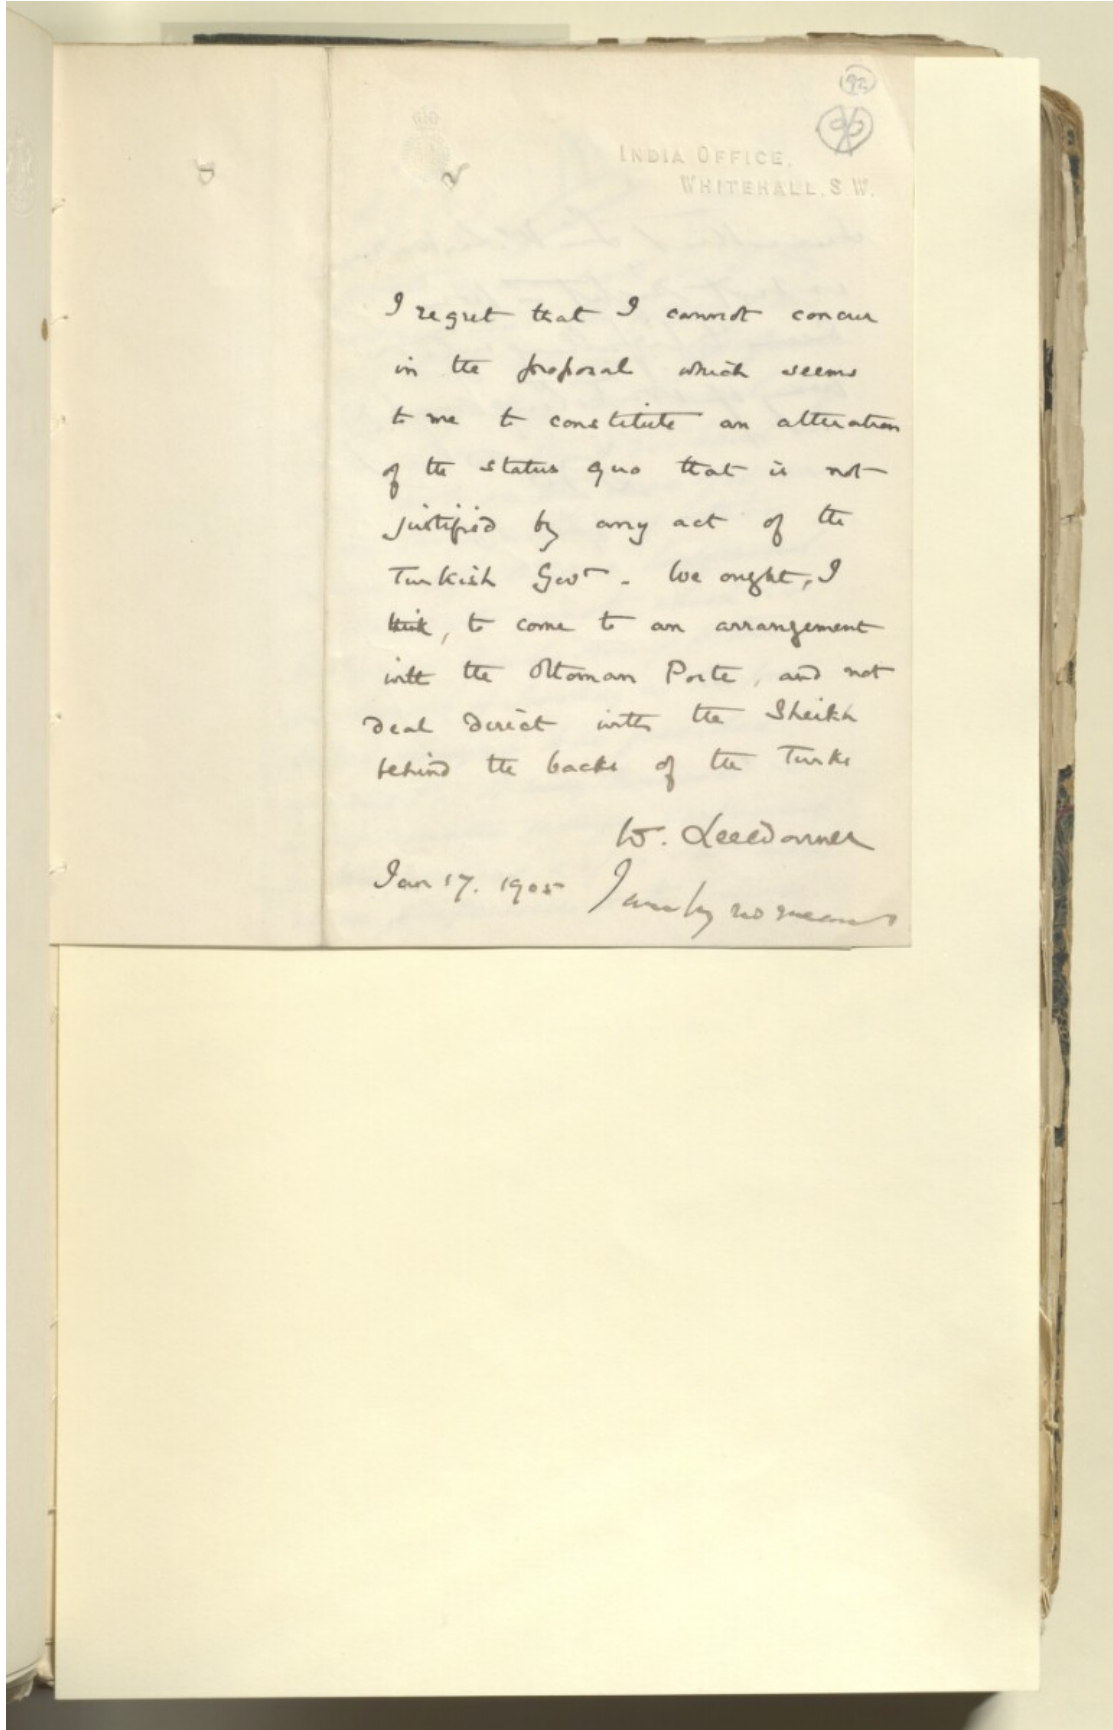 192
INDIA OFFICE,
WHITEHALL, S.W.
I regret that I cannot concur
in the proposal which seems
to me to constitute an alteration
of the status quo that is not
justified by any act of the
Turkish Govt. We ought, I
think, to come to an arrangement
with the Ottoman Porte, and not
deal direct with the Sheikh
behind the backs of the Turks
W. Lee Warner
Jan 17. 1905
I am by no means